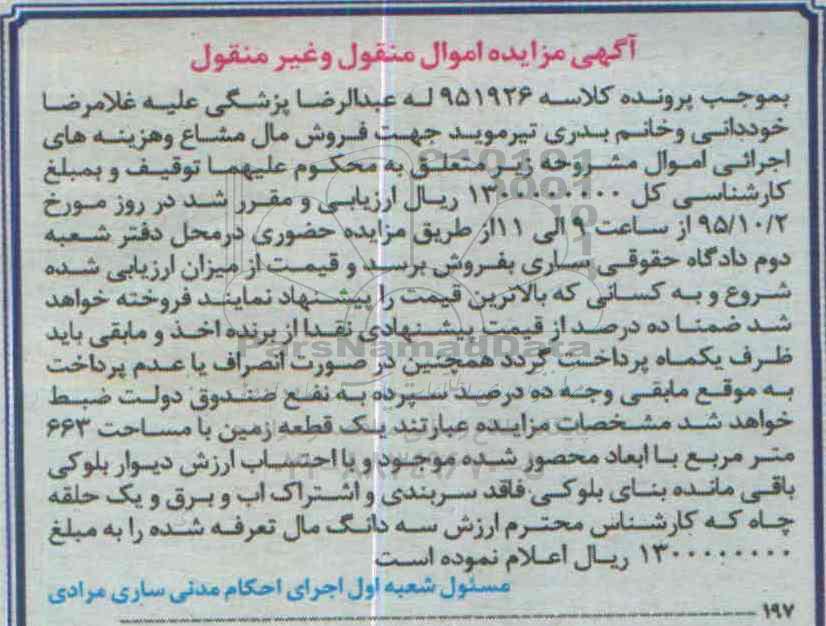 آگهی مزایده اموال منقول وغیر منقول
بموجب پرونده کلاسه ۹۵۱۹۲۶ له عبدالرضا پزشگی علیه غلامرضا
خوددانی وخانم بدری تیرموید جهت فروش مال مشاع وهزینه های
اجرائی اموال مشروحه زیر متعلق به محکوم علیهما توقیف و بمبلغ
کارشناسی کل ۱۳۰۰۰۰۰۰۰۰ ریال ارزیابی و مقرر شد در روز مورخ
۹۵/۱۰/۲ از ساعت ۹ الی ۱۱از طریق مزایده حضوری درمحل دفتر شعبه
دوم دادگاه حقوقی ساری بفروش برسد و قیمت از میزان ارزیابی شده
شروع و به کسانی که بالاترین قیمت را پیشنهاد نمایند فروخته خواهد
شد ضمنا ده درصد از قیمت پیشنهادی نقدا از برنده اخذ و مابقی باید
ظرف یکماه پرداخت گردد همچنین در صورت انصراف یا عدم پرداخت
به موقع مابقی وجه ده درصد سپرده به نفع صندوق دولت ضبط
خواهد شد مشخصات مزایده عبارتند یک قطعه زمین با مساحت ۶۶۳
متر مربع با ابعاد محصور شده موجود و با احتساب ارزش دیوار بلوکی
باقی مانده بنای بلوکی فاقد سربندی و اشتراک اب و برق و یک حلقه
چاه که کارشناس محترم ارزش سه دانگ مال تعرفه شده را به مبلغ
۱۳۰۰۰۰۰۰۰۰ ریال اعلام نموده است
مسئول شعبه اول اجرای احکام مدنی ساری مرادی
۱۹۷
ParsNamadData